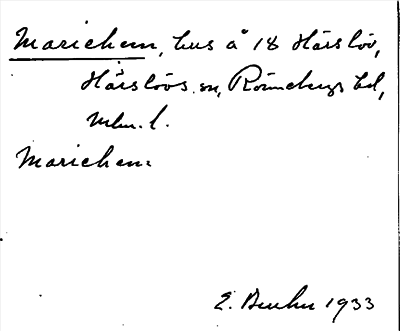 Mariehem, hus å 18 Härslöv,
Härslövs sn, Rönnebergs hd,
Mlm. l.
Mariehem.
E. 1933